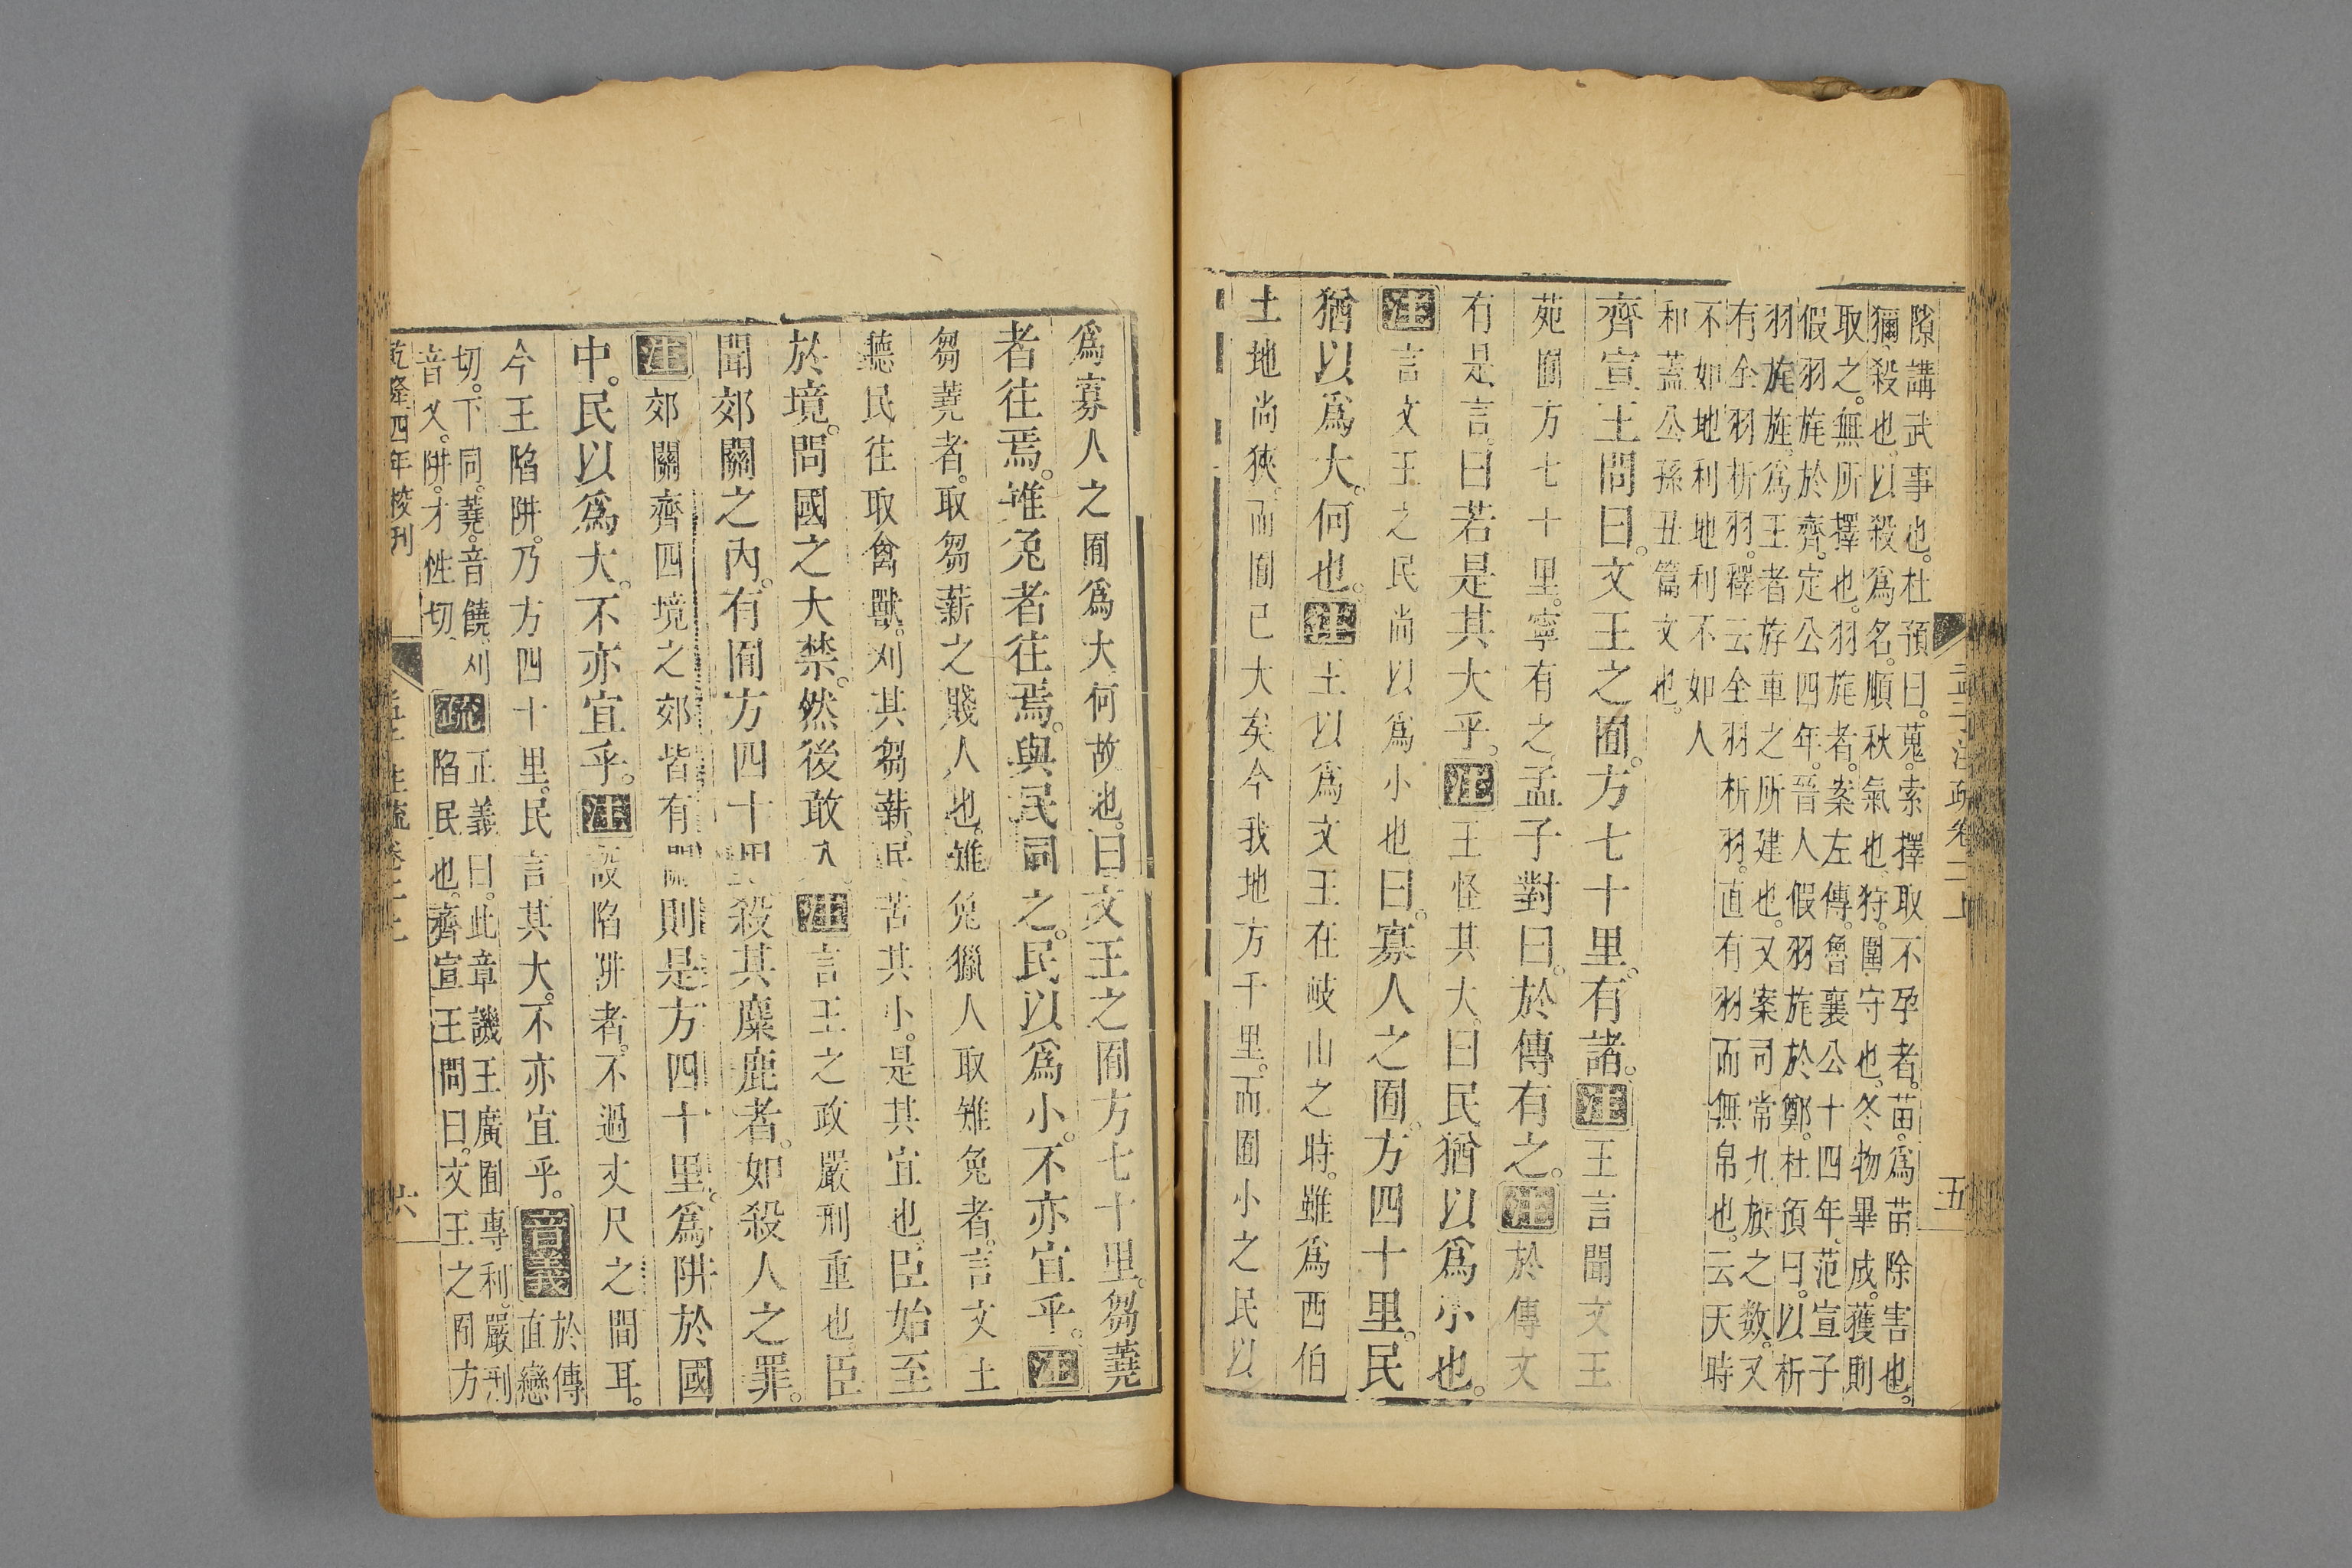 隙講武事也。杜預曰。蒐。索擇取不孕者。苗。爲苗除害也。
獮。殺也。以殺爲名。順秋氣也。狩。圍守也。冬物畢成。獲則
取之。無所擇也。羽旄者。案左傳。魯襄公十四年。范宣子
假羽旄於齊。定公四年。晉人假羽旄於鄭。杜預曰。以析
羽旄旌。爲王者斿車之所建也。又案司常九旗之數。又
有全羽析羽。釋云全羽析羽。直有羽而無帛也。云天時
不如地利地利不如人
和蓋公孫丑篇文也。
齊宣王問曰。文王之囿。方七十里。有諸。注王言聞文王
苑囿方七十里。寧有之。孟子對曰。於傳有之。注於傳文
有是言。曰若是其大乎。注王怪其大。曰民猶以爲小也。
注言文王之民尚以爲小也。曰。寡人之囿。方四十里。民
猶以爲大。何也。注王以爲文王在岐山之時。雖爲西伯
土地尚狹。而囿已大矣今我地方千里。而囿小之民以
五
爲寡人之囿爲大何故也。曰文王之囿方七十里。芻蕘
者往焉。雉兔者往焉。與民同之。民以爲小。不亦宜乎。注
芻蕘者。取芻薪之賤人也。雉兔獵人取雉兔者。言文王
聽民往取禽獸。刈其芻薪。民苦其小。是其宜也。臣始至
於境。問國之大禁。然後敢入。注言王之政嚴刑重也。臣
聞郊關之內。有囿方四十里。殺其麋鹿者。如殺人之罪。
注郊關齊四境之郊皆有關則是方四十里。爲阱於國
中。民以爲大。不亦宜乎。注設陷阱者。不過丈尺之間耳。
今王陷阱。乃方四十里。民言其大。不亦宜乎。音義於傳
直戀
切。下同。蕘。音饒。刈
音乂。阱。才性切。疏正義曰。此章譏王廣囿專利。嚴刑
陷民也。齊宣王問曰。文王之囿方
乾隆四年校刊
六